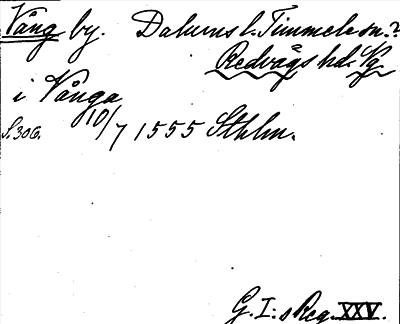 Vång by. Dalums l. Timmele sn.?
Redvägs hd. Vg
i Vånga
S.306. 10/7 1555 Sthlm.
G. I:s Reg. XXV.